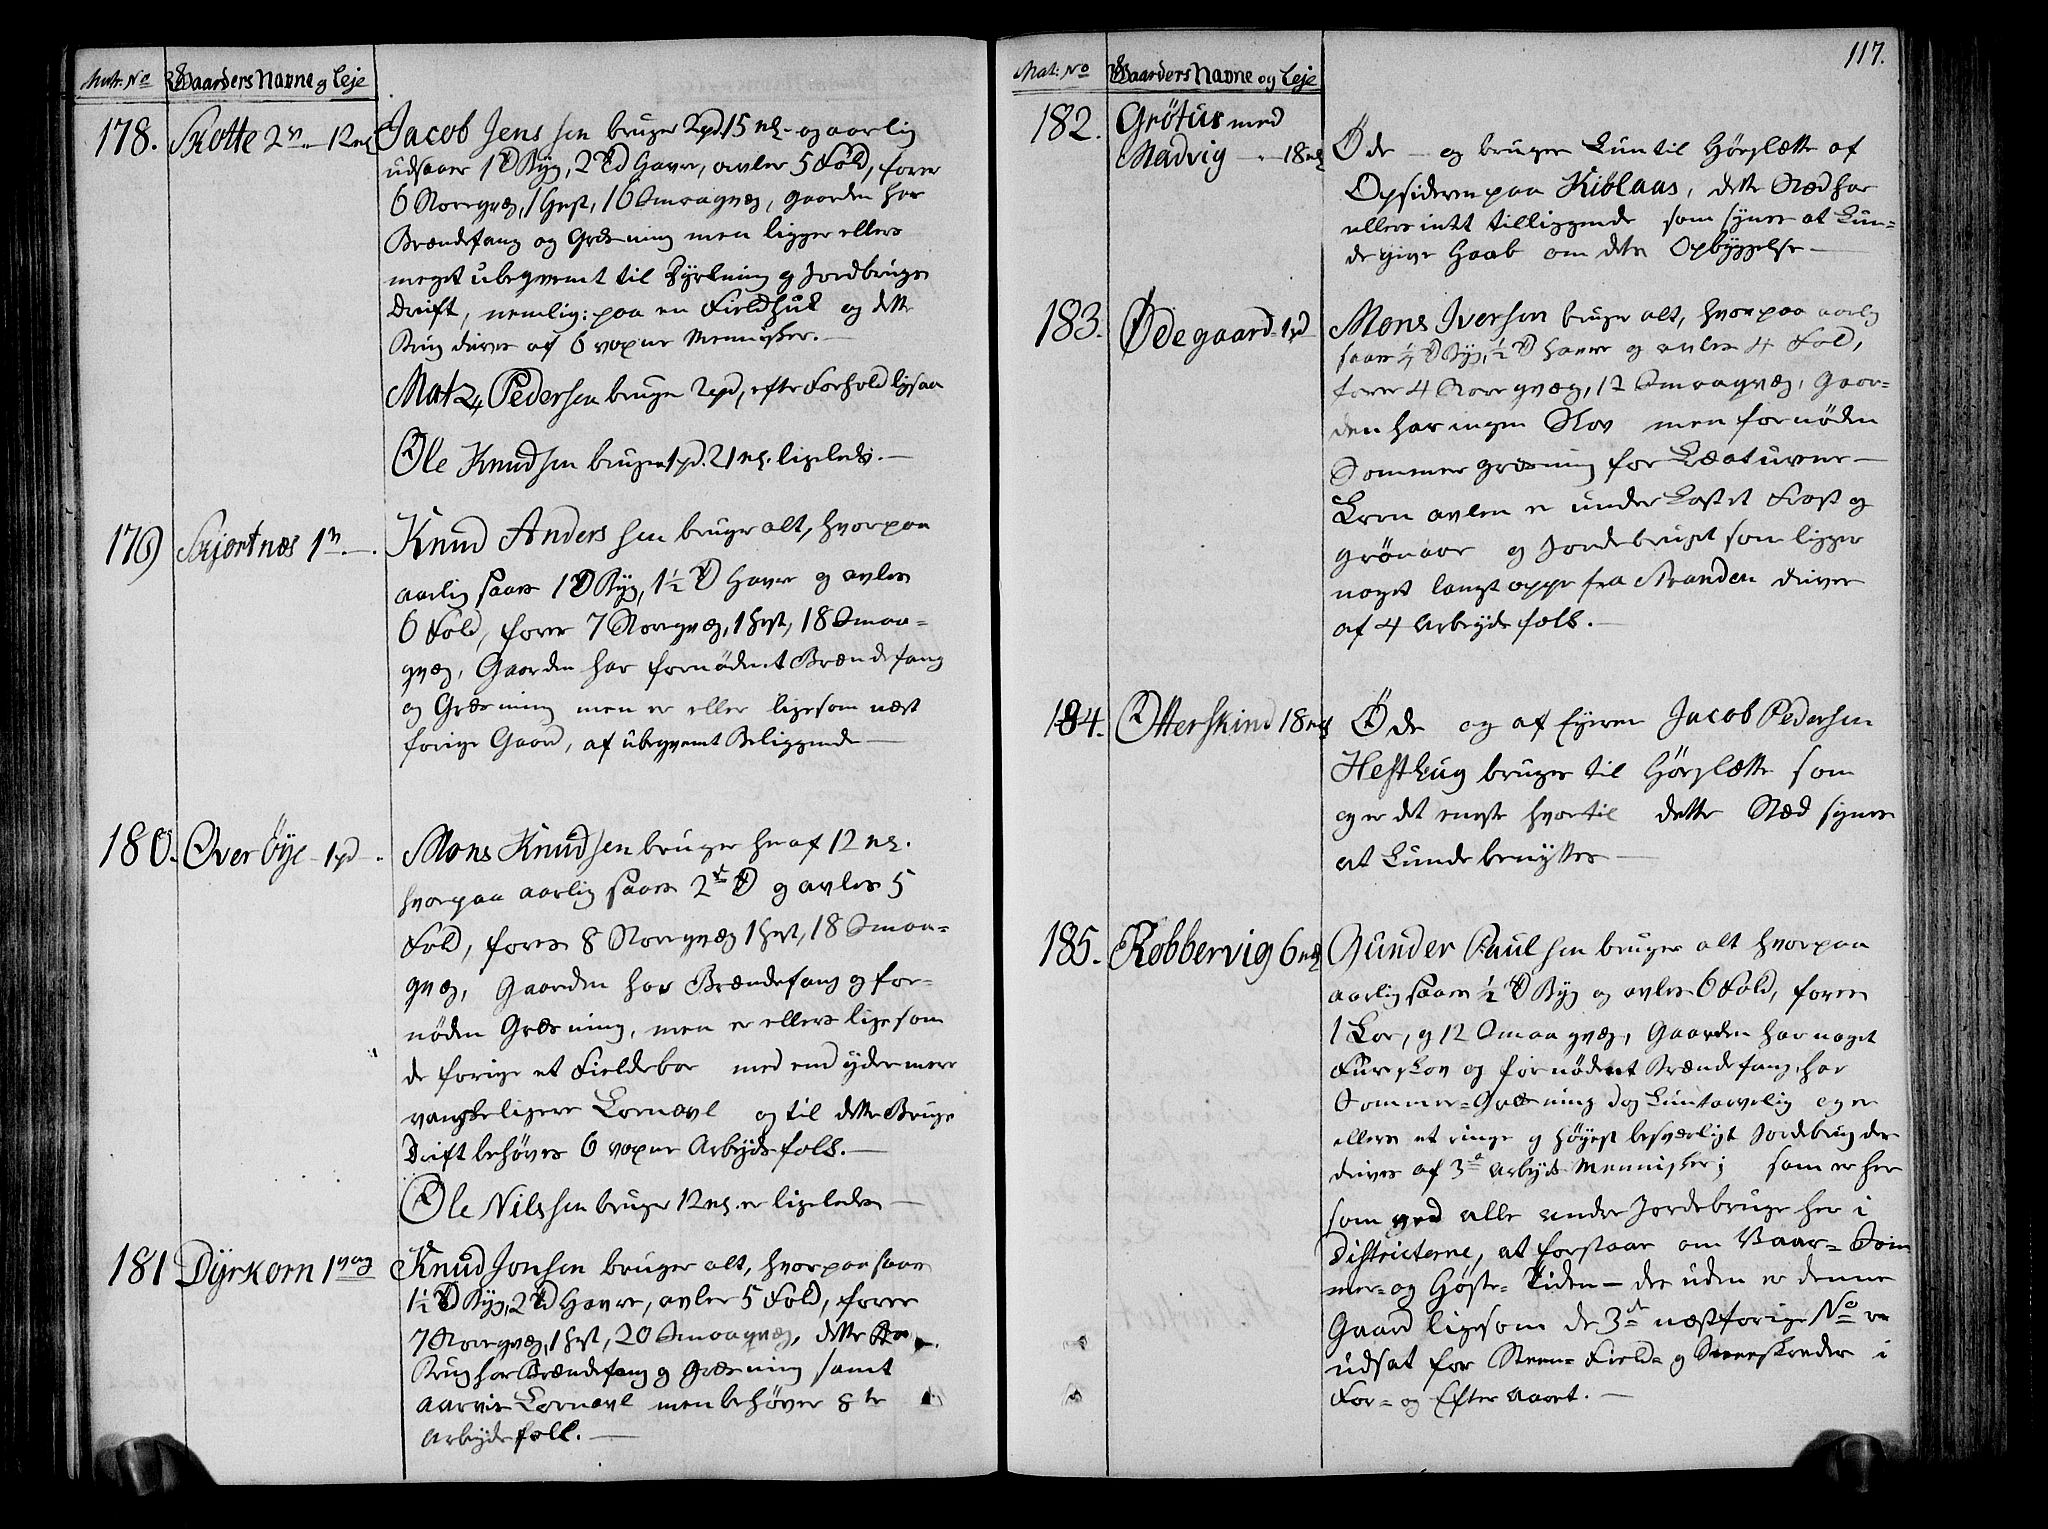 Matr: No
Gaarders Navne og Leje
178.
Skotte 2 v. — 12 mk
Jacob Jenssen bruger 2 pd. 15 mk. og aarlig
udsaaer 1 Td Byg, 2 Td Havre, avler 5 Fold, foder
6 Storeqvæg, 1 Hest, 16 Smaaqvæg, Gaarden har
Brændefang og Græsning men ligger ellers
meget ubeqvemt til Dyrkning og Jordbrugs
Drift, nemlig: paa en Fieldhuk og dette
Brug drives af 6 voxne Mennisker. —
Matz Pedersen bruger 2 pd, efter Forhold ligsaa
Ole Knudsen bruger 1 pd. 21 mk. ligeleds. —
179
Skjortnæs 1 v. —
Knud Anderssen bruger alt, hvorpaa
aarlig saaes 1 Td Byg, 1½ Td Havre og avles
6 Fold, foder 7 Storeqvæg, 1 Hest, 18 Smaa-
qvæg, Gaarden har fornødent Brændefang
og Græsning men er eller ligesom næst
forige Gaard, af ubeqvemt Beliggende —
180.
Over Öye — 1 pd — .
Mons Knudsen bruger heraf 12 mk.
hvorpaa aarlig saaes 2de Td og avles 5
Fold, fores 8 Storeqvæg 1 Hest, 18 Smaa-
qvæg, Gaarden har Brændefang og for-
nöden Græsning, men er ellers ligesom
de forige et Fieldeboe med end ydermere
vanskeligere Kornavl og til dette Brugs
Drift behøves 6 voxne Arbeydsfolk. —
Ole Nilssen bruger 12 mk. er ligeledes —
181
Dÿrkorn 1 vog
Knud Jonsen bruger alt, hvorpaa saaes
1½ Td Byg, 2 Td Havre, avler 5 Fold, forer
7 Storeqvæg, 1 Hest, 20 Smaaqvæg, dette
Brug har Brændefang og Græsning samt
aarvis Kornavl men behøver 8te
Arbeydsfolk. —
117.
Mat: No
Gaarders Navne og Leje
182.
Grötus med
Madvig — 18 mk
Öde — og bruges kun til Høeslætte af
Opsideren paa Kiblaas, dette Stæd har
ellers intet tilliggende som synes at kun-
de give Haab om dets Opbyggelse —
183.
Ödegaard 1 pd
Mons Iversen bruger alt, hvorpaa aarlig
saaes ¼ Td Byg, ½ Td Havre og avles 4 Fold,
forer 4 Storeqvæg, 12 Smaaqvæg, Gaar-
den har ingen Skov men fornøden
Sommergræsning for Kreaturene —
Korn avlen er underkastet Frost og
grönaar og Jordebruget som ligger
noget langt oppe fra Stranden drives
af 4 Arbeydsfolk. —
184.
Otterskind 18 mk
Öde og af Eyeren Jacob Pedersen
Hesthug bruges til Høeslætte som
og er det eneste hvortil dette Stæd synes
at kunde benyttes —
185.
Robbervig 6 mk
Gunder Paulsen bruger alt hvorpaa
aarlig saaes ½ Td Byg og avles 6 Fold, forer
1 Koe, og 12 Smaaqvæg, Gaarden har noget
Fureskov og fornødent Brændefang, har
Sommer-Græsning dog kun tarvelig og er
ellers et ringe og høyest besværligt Jordebrug der
drives af 3de Arbeyds Mennisker; som er her
som ved alle andre Jordebruge her i
Districterne, at forstaar om Vaar- Som
mer- og Høste- Tiden — des uden er denne
Gaard ligesom de 3de næstforige No er
udsat for Steen- Field- og Sneeskreder i
For- og Efter Aaret. —